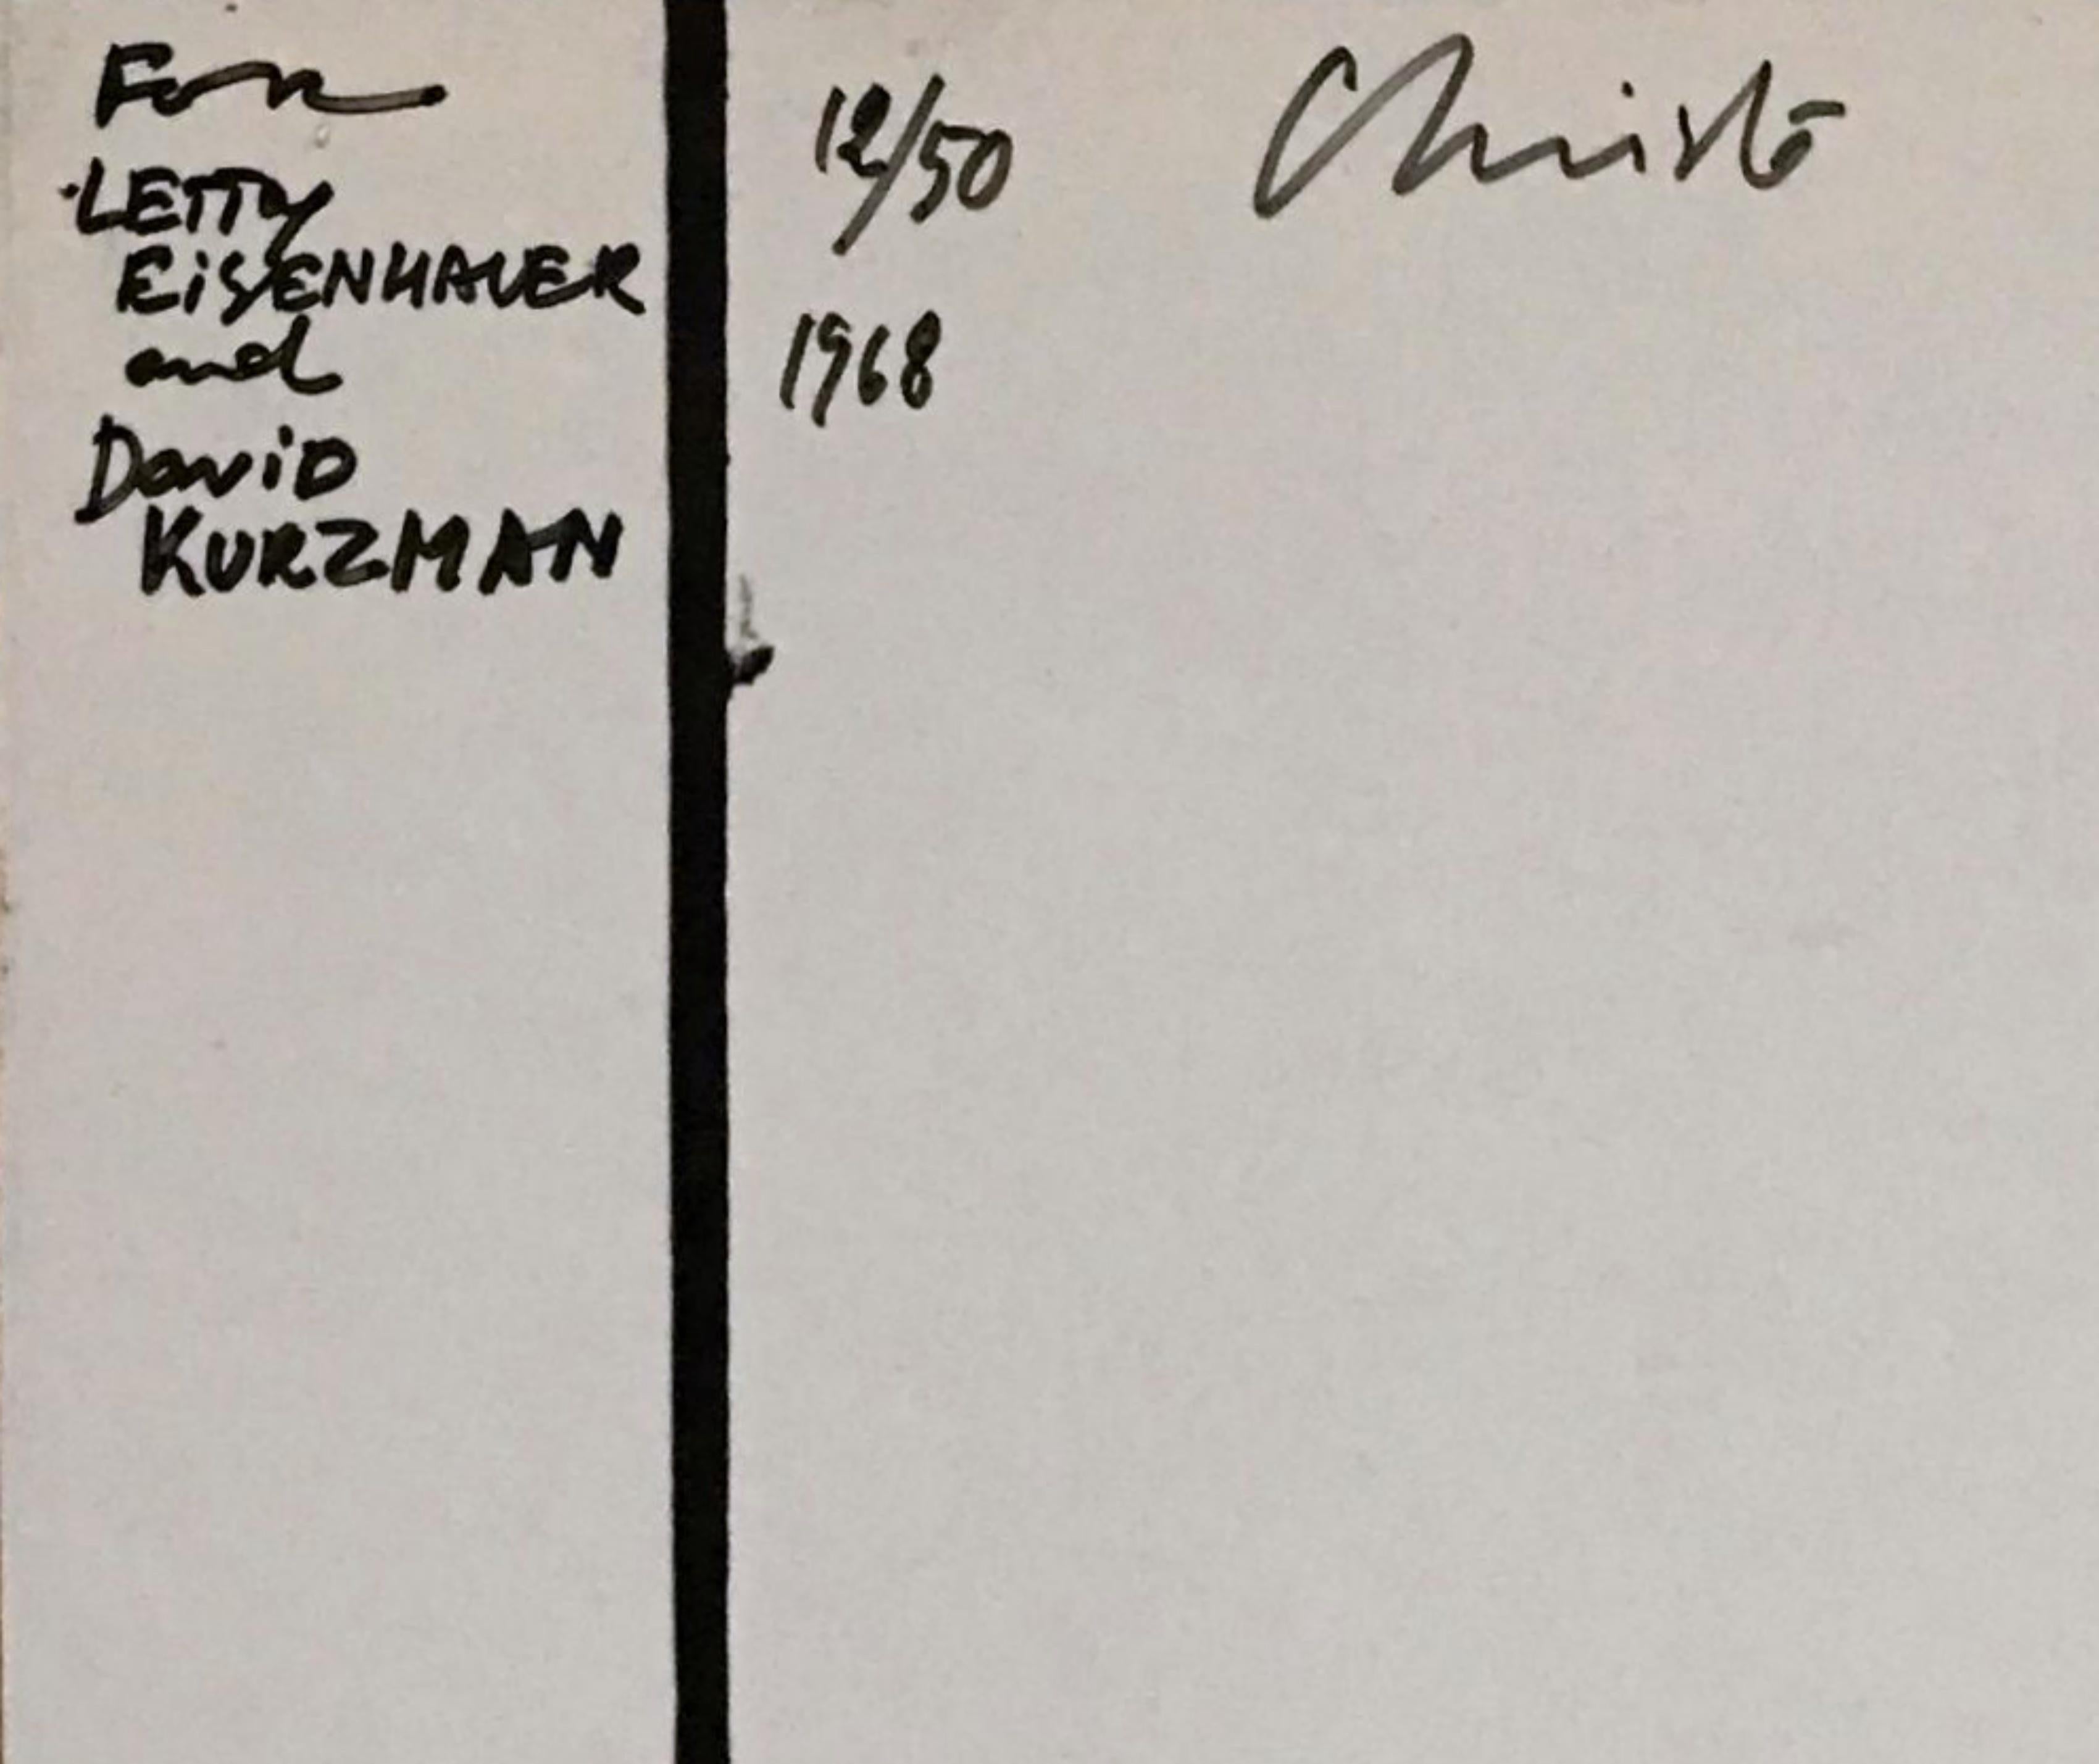 For
LETTY
EiSENHAUER
and
DaviD
KURZMAN
12/50
1968
Christo